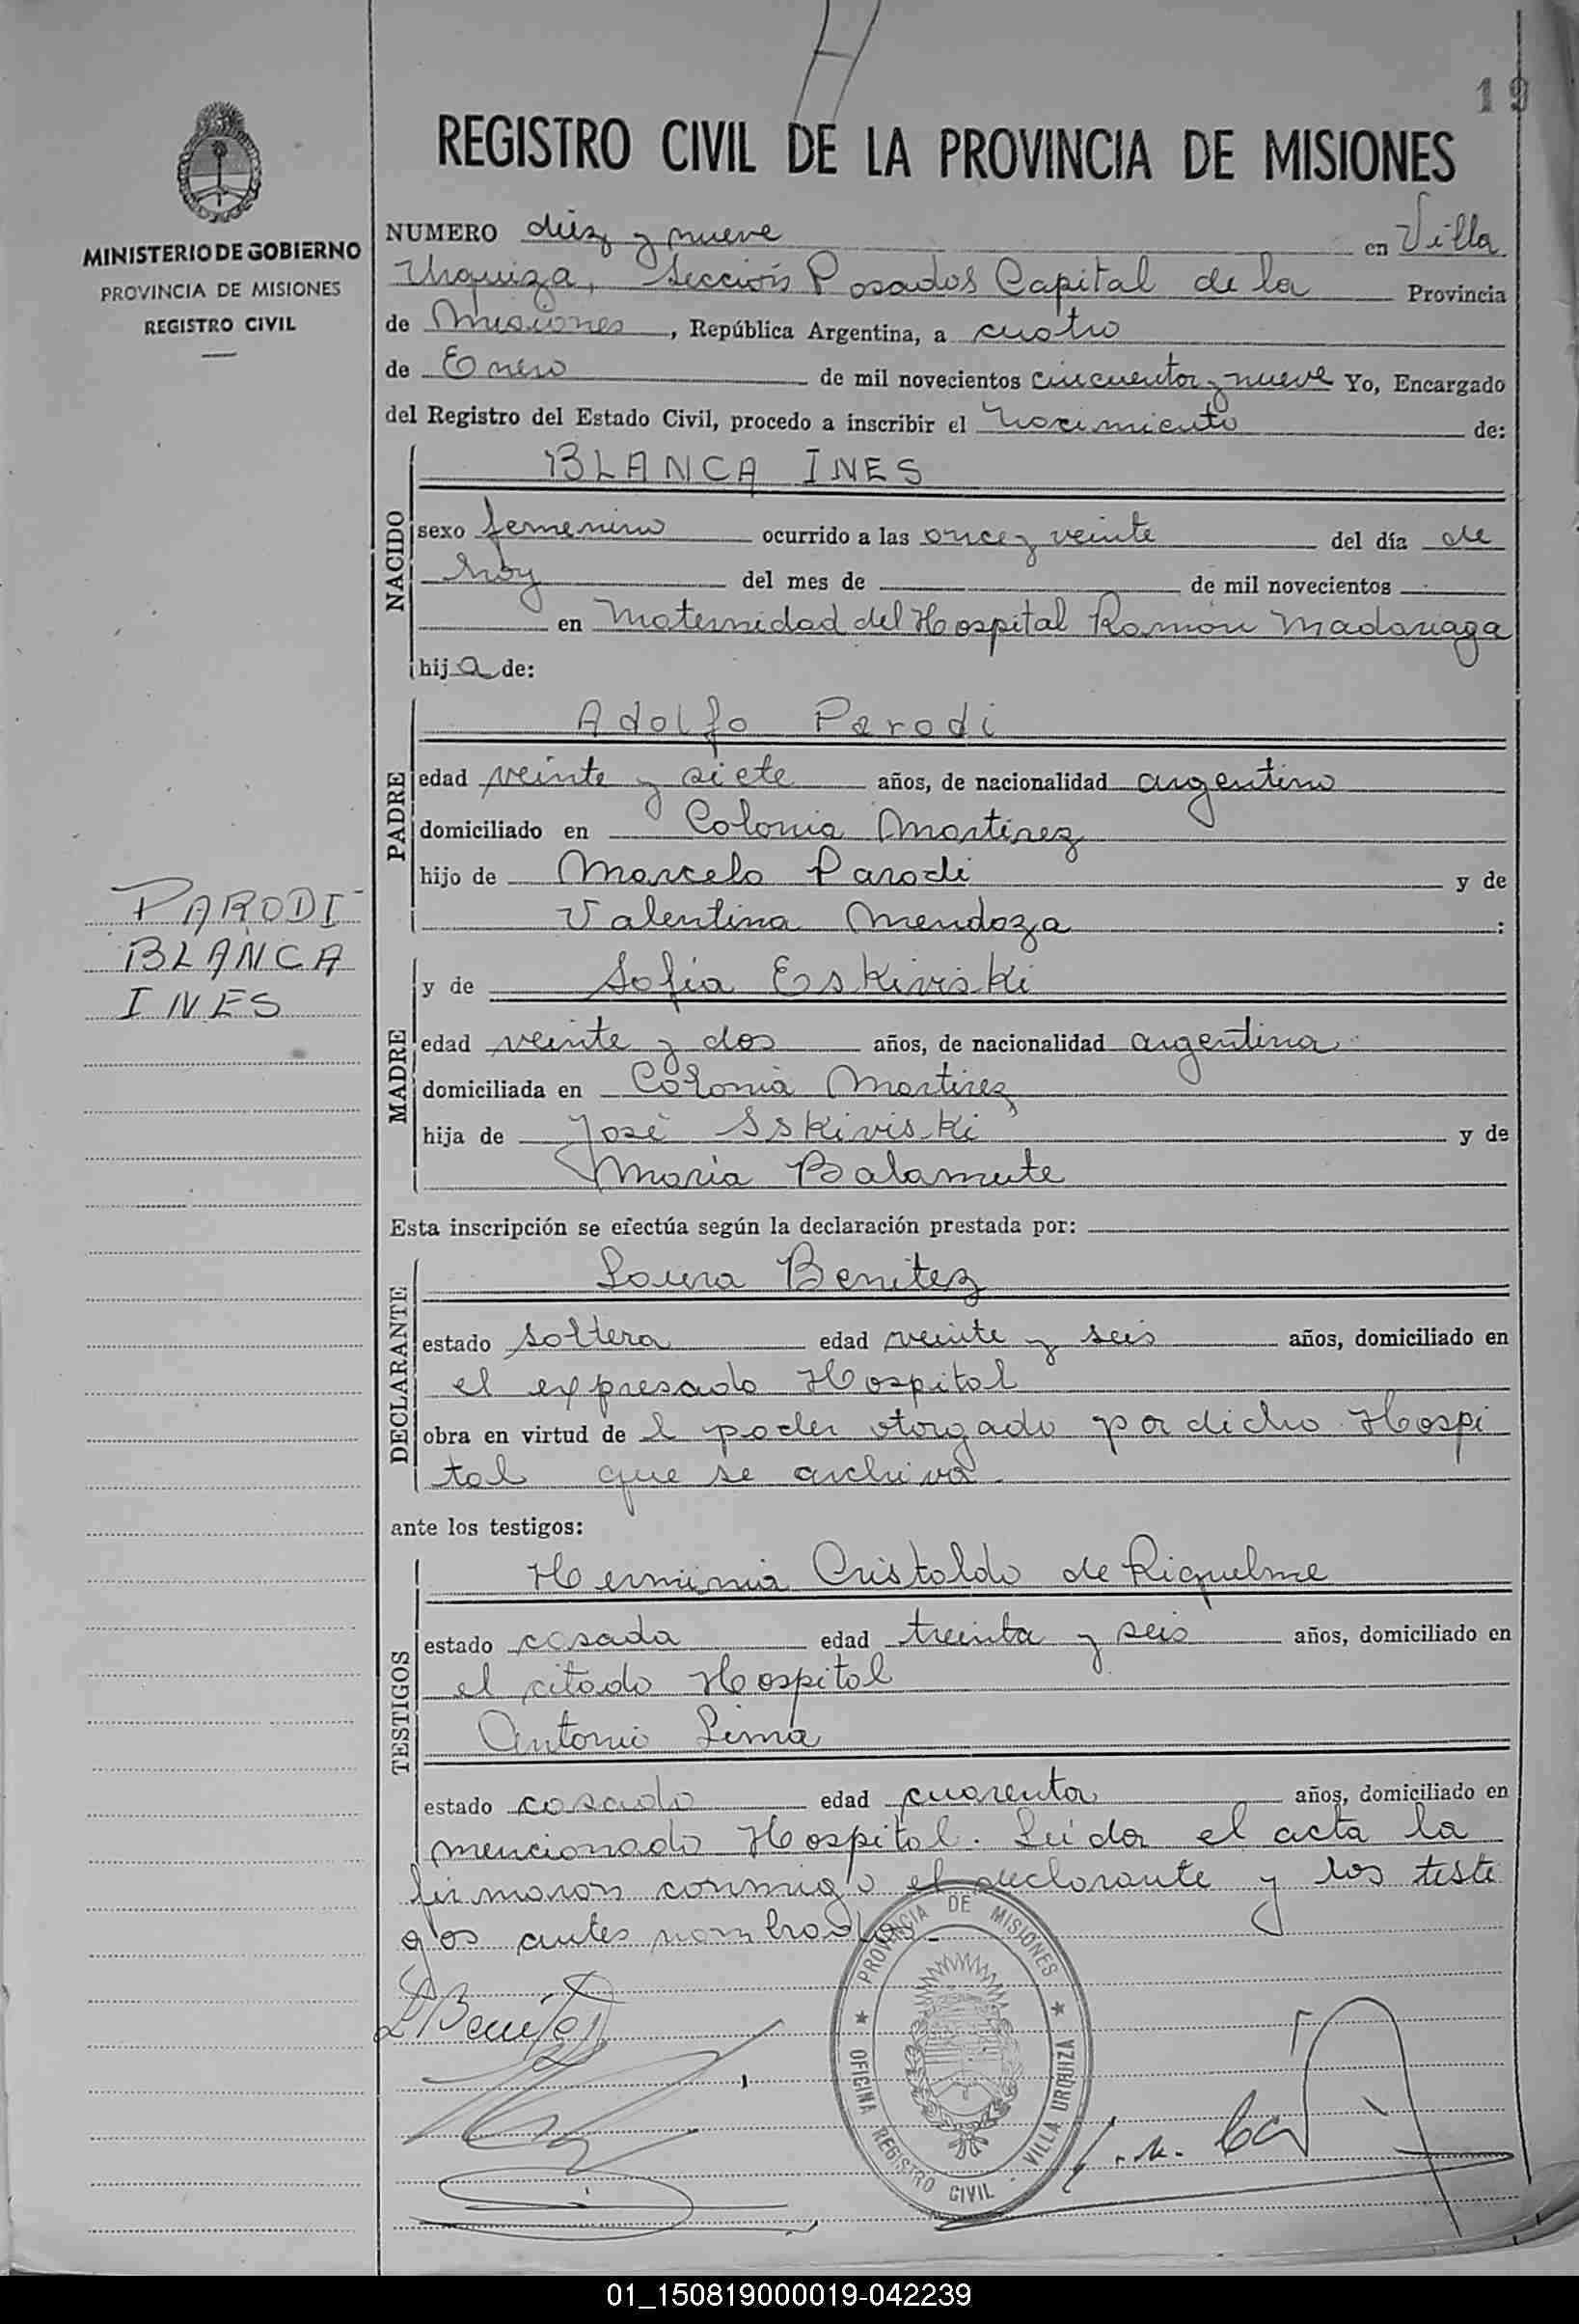 19
REGISTRO CIVIL DE LA PROVINCIA DE MISIONES
MINISTERIO DE GOBIERNO
PROVINCIA DE MISIONES
REGISTRO CIVIL
NUMERO diez y nueve en Villa
Urquiza, Sección Posadas Capital de la Provincia
de Misiones, República Argentina, a cuatro
de Enero de mil novecientos cincuenta y nueve Yo, Encargado
del Registro del Estado Civil, procedo a inscribir el nacimiento de:
NACIDO
BLANCA INES
sexo femenino ocurrido a las once y veinte del día de
hoy del mes de de mil novecientos
en Maternidad del Hospital Ramon Madariaga
hija de:
PADRE
Adolfo Parodi
edad veinte y siete años, de nacionalidad argentino
domiciliado en Colonia Martinez
hijo de Marcelo Parodi y de
Valentina Mendoza :
PARODI
BLANCA
INES
MADRE
y de Sofia Eskiviski
edad veinte y dos años, de nacionalidad argentina
domiciliada en Colonia Martinez
hija de José Iskiviski y de
Maria Balamute
Esta inscripción se efectúa según la declaración prestada por:
DECLARANTE
Laura Benitez
estado soltera edad veinte y seis años, domiciliado en
el expresado Hospital
obra en virtud de l poder otorgado por dicho Hospi
tal que se archiva.
ante los testigos:
TESTIGOS
Herminia Cristaldo de Riquelme
estado casada edad treinta y seis años, domiciliado en
el citado Hospital
Antonio Lima
estado casado edad cuarenta años, domiciliado en
mencionado Hospital. Leida el acta la
firmaron conmigo el declarante y los testi
gos antes nombrados.
L Benitez
PROVINCIA DE MISIONES
OFICINA REGISTRO CIVIL VILLA URQUIZA
01_150819000019-042239